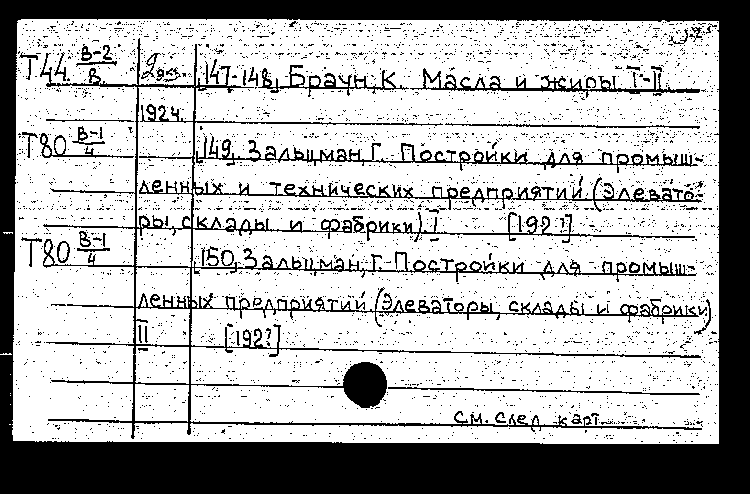 Т44 В-2/В. 2 экз. [147-148] Браун, К. Масла и жиры. I-II.
1924.
Т80 В-1/4 [149] Зальцман, Г. Постройки для промыш-
ленных и технических предприятий. (Элевато-
ры, склады и фабрики). I [192?]
Т80 В-1/4 [150] Зальцман, Г. Постройки для промыш-
ленных предприятий. (Элеваторы, склады и фабрики)
II [192?]
см. след карт.